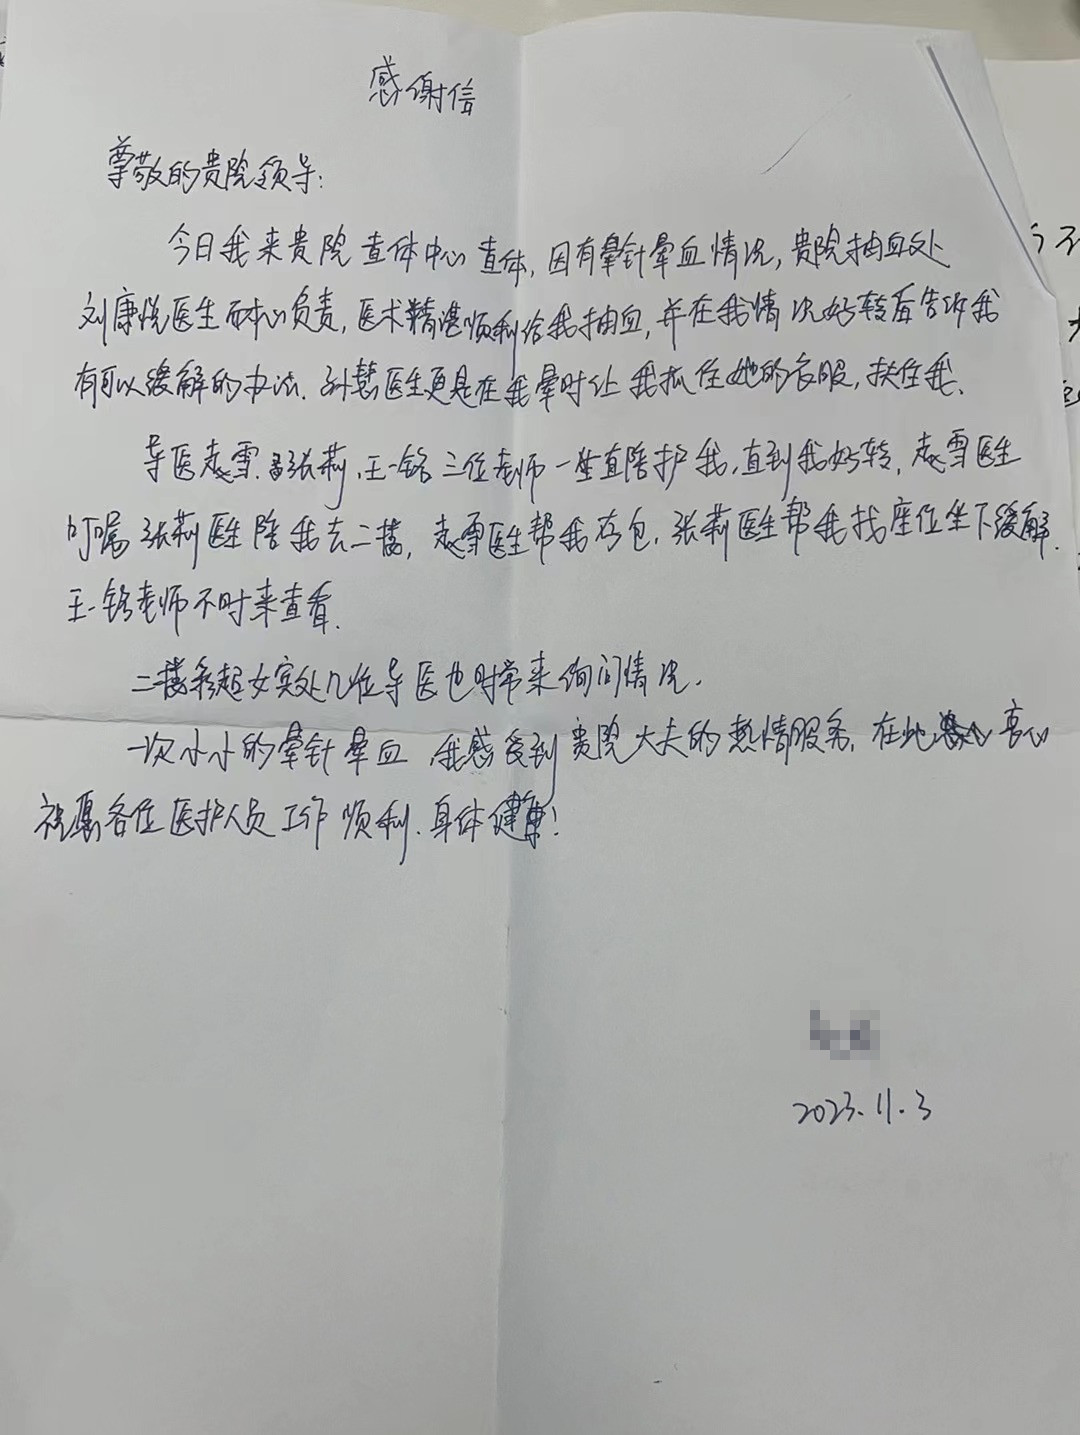 感谢信
尊敬的贵院领导：
今日我来贵院查体中心查体，因有晕针晕血情况，贵院抽血处
刘康悦医生耐心负责，医术精湛顺利给我抽血，并在我情况好转后告诉我
有可以缓解的办法．孙慧医生更是在我晕时让我抓住她的衣服，扶住我．
导医赵雪．张莉，王一铭三位老师一直陪护我，直到我好转，赵雪医生
叮嘱张莉医生陪我去二楼，赵雪医生帮我存包，张莉医生帮我找座位坐下缓解．
王一铭老师不时来查看．
二楼彩超女宾处几位导医也时常来询问情况．
一次小小的晕针晕血 我感受到贵院大夫的热情服务，在此衷心
祝愿各位医护人员工作顺利．身体健康！
2023.11.3